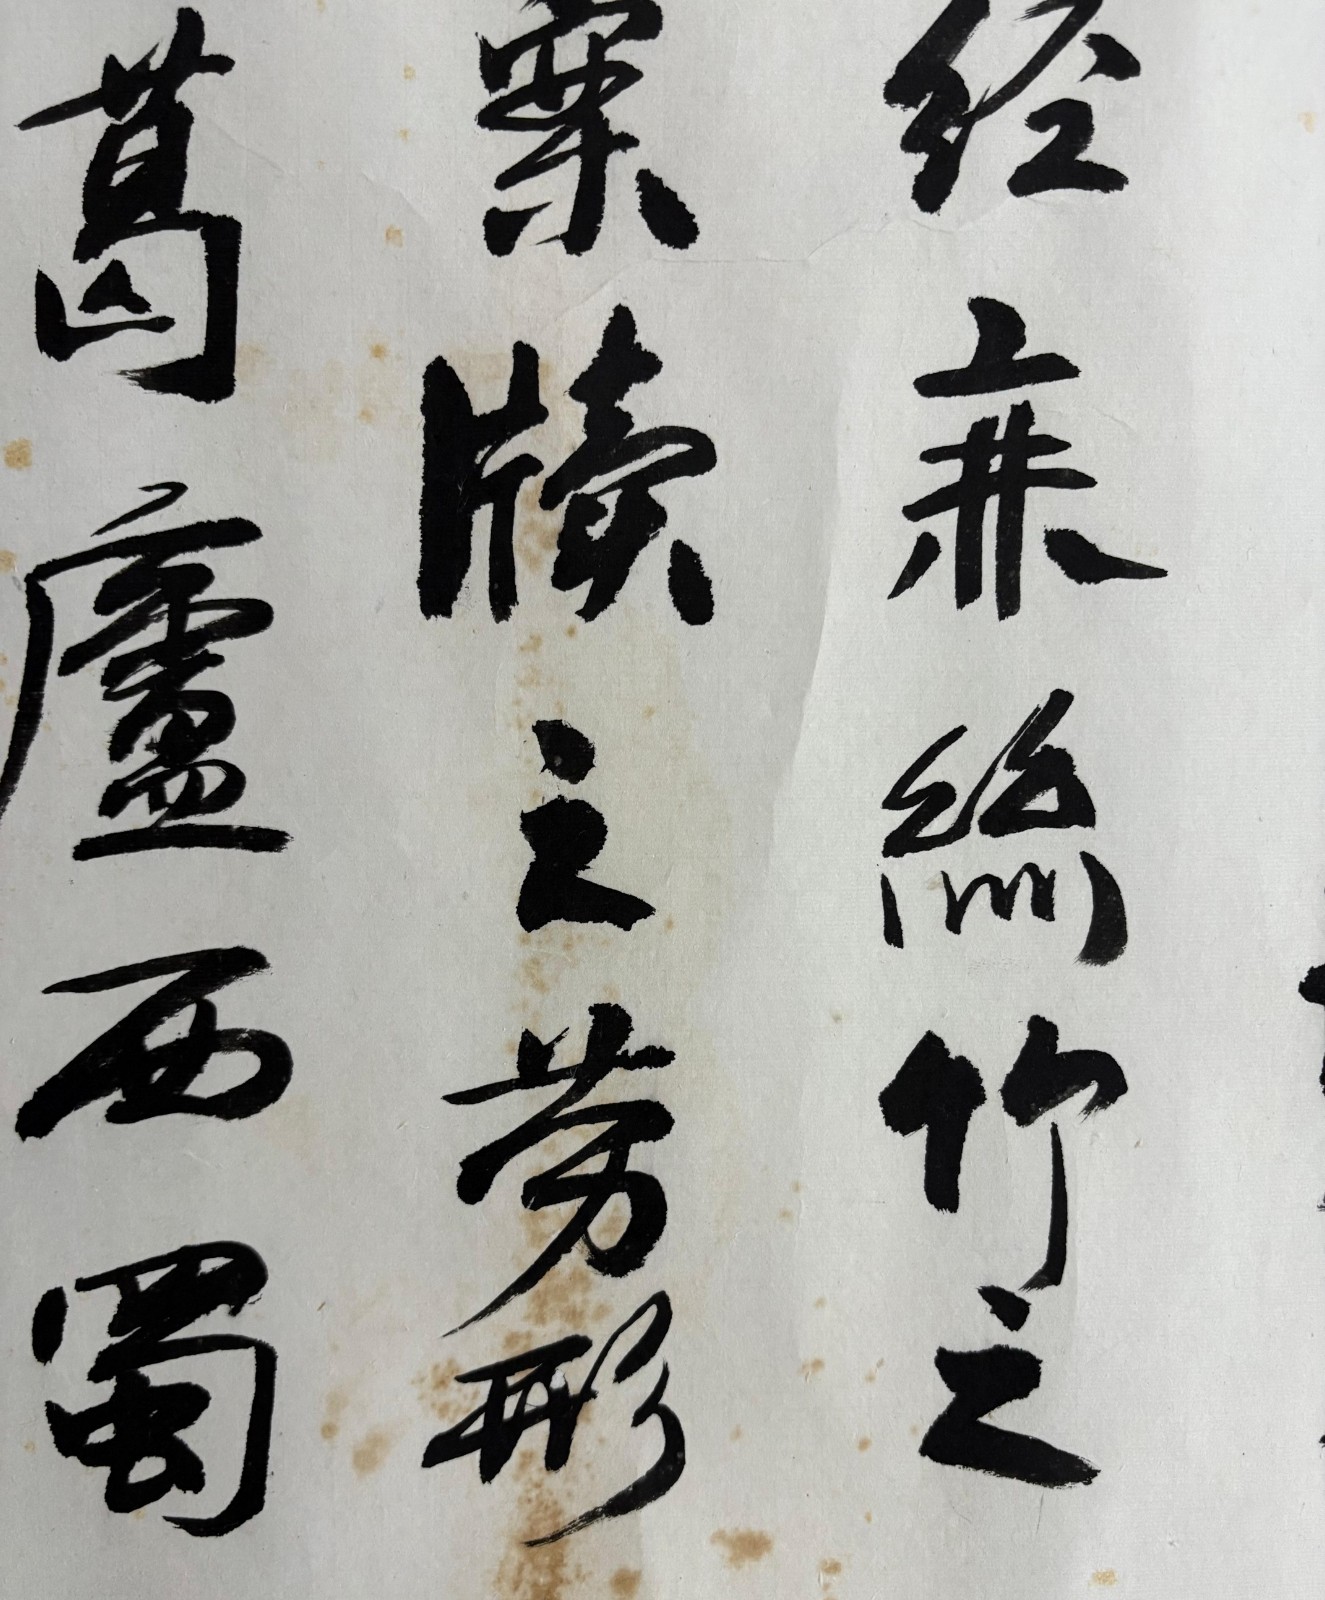 经無絲竹之
案牘之劳形
葛廬西蜀